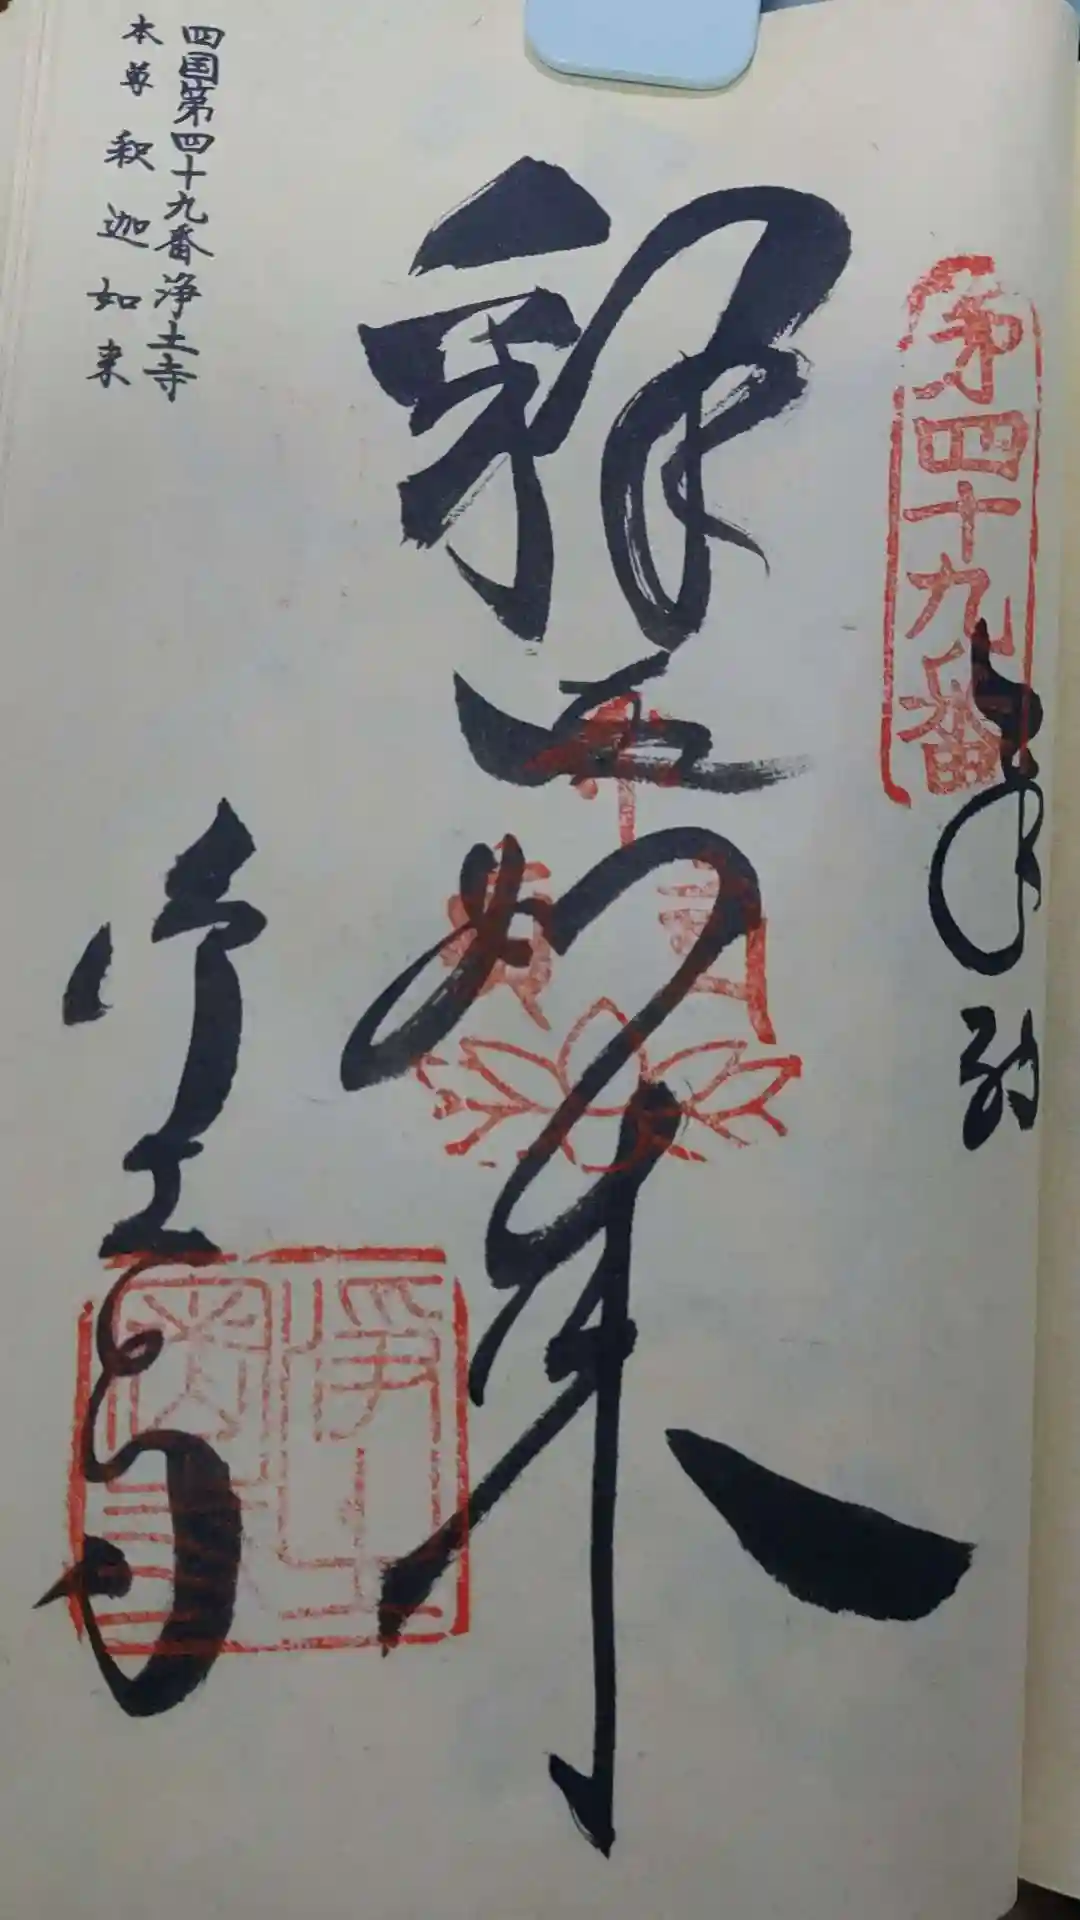 第四十九番
奉納
釈迦如来
浄土寺
四国第四十九番浄土寺
本尊 釈迦如来